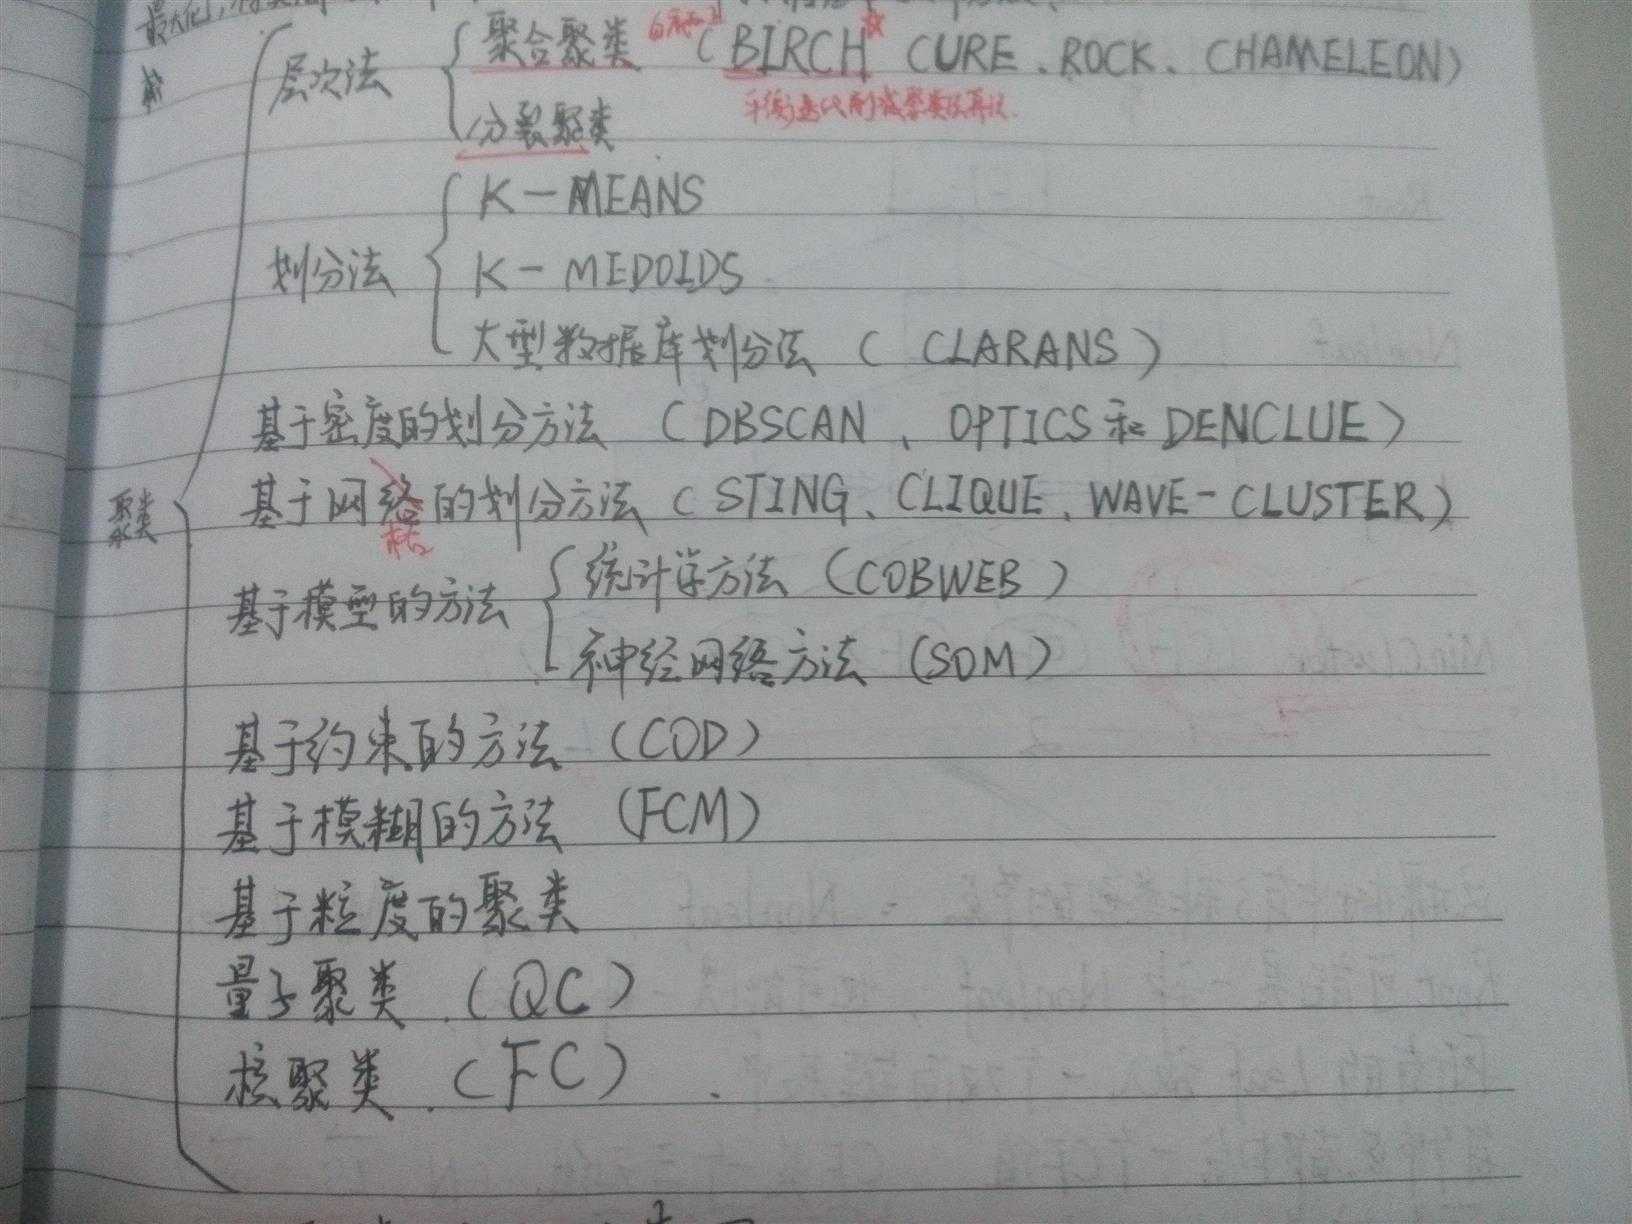 最大化,
层次法 { 聚合聚类 (BIRCH CURE、ROCK、CHAMELEON)
平衡迭代削减聚类法算法.
分裂聚类
K-MEANS
划分法 { K-MEDOIDS
大型数据库划分法 (CLARANS)
基于密度的划分方法 (DBSCAN、OPTICS和DENCLUE)
聚类 { 基于网络的划分方法 (STING、CLIQUE、WAVE-CLUSTER)
格
基于模型的方法 { 统计学方法 (COBWEB)
神经网络方法 (SOM)
基于约束的方法 (COD)
基于模糊的方法 (FCM)
基于粒度的聚类
量子聚类.(QC)
核聚类.(FC).